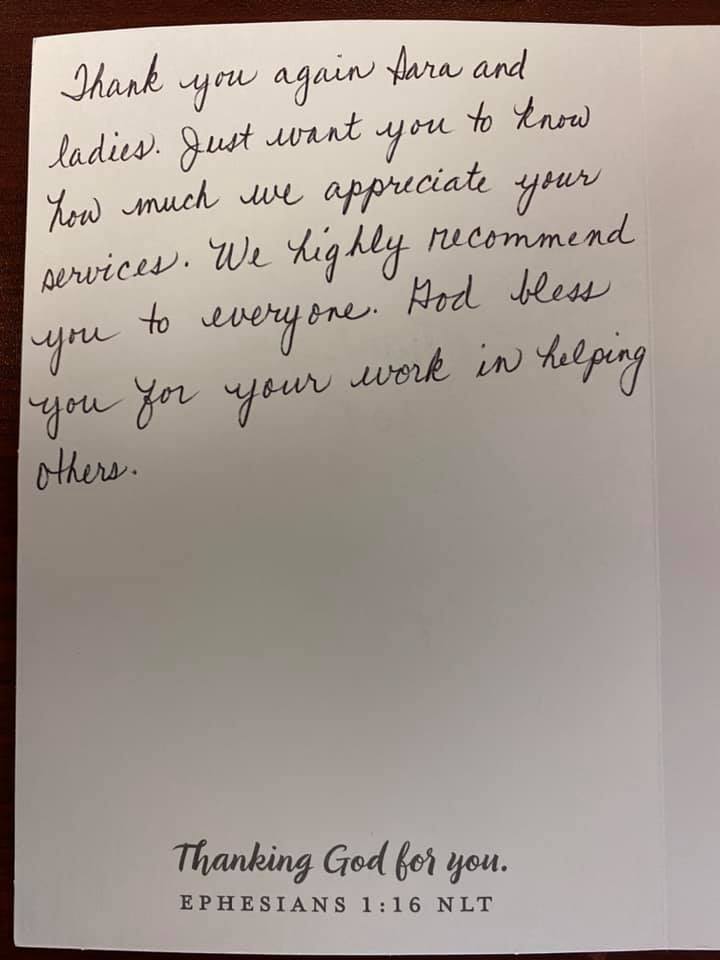 Thank you again Sara and
ladies. Just want you to know
how much we appreciate your
services. We highly recommend
you to everyone. God bless
you for your work in helping
others.
Thanking God for you.
EPHESIANS 1:16 NLT